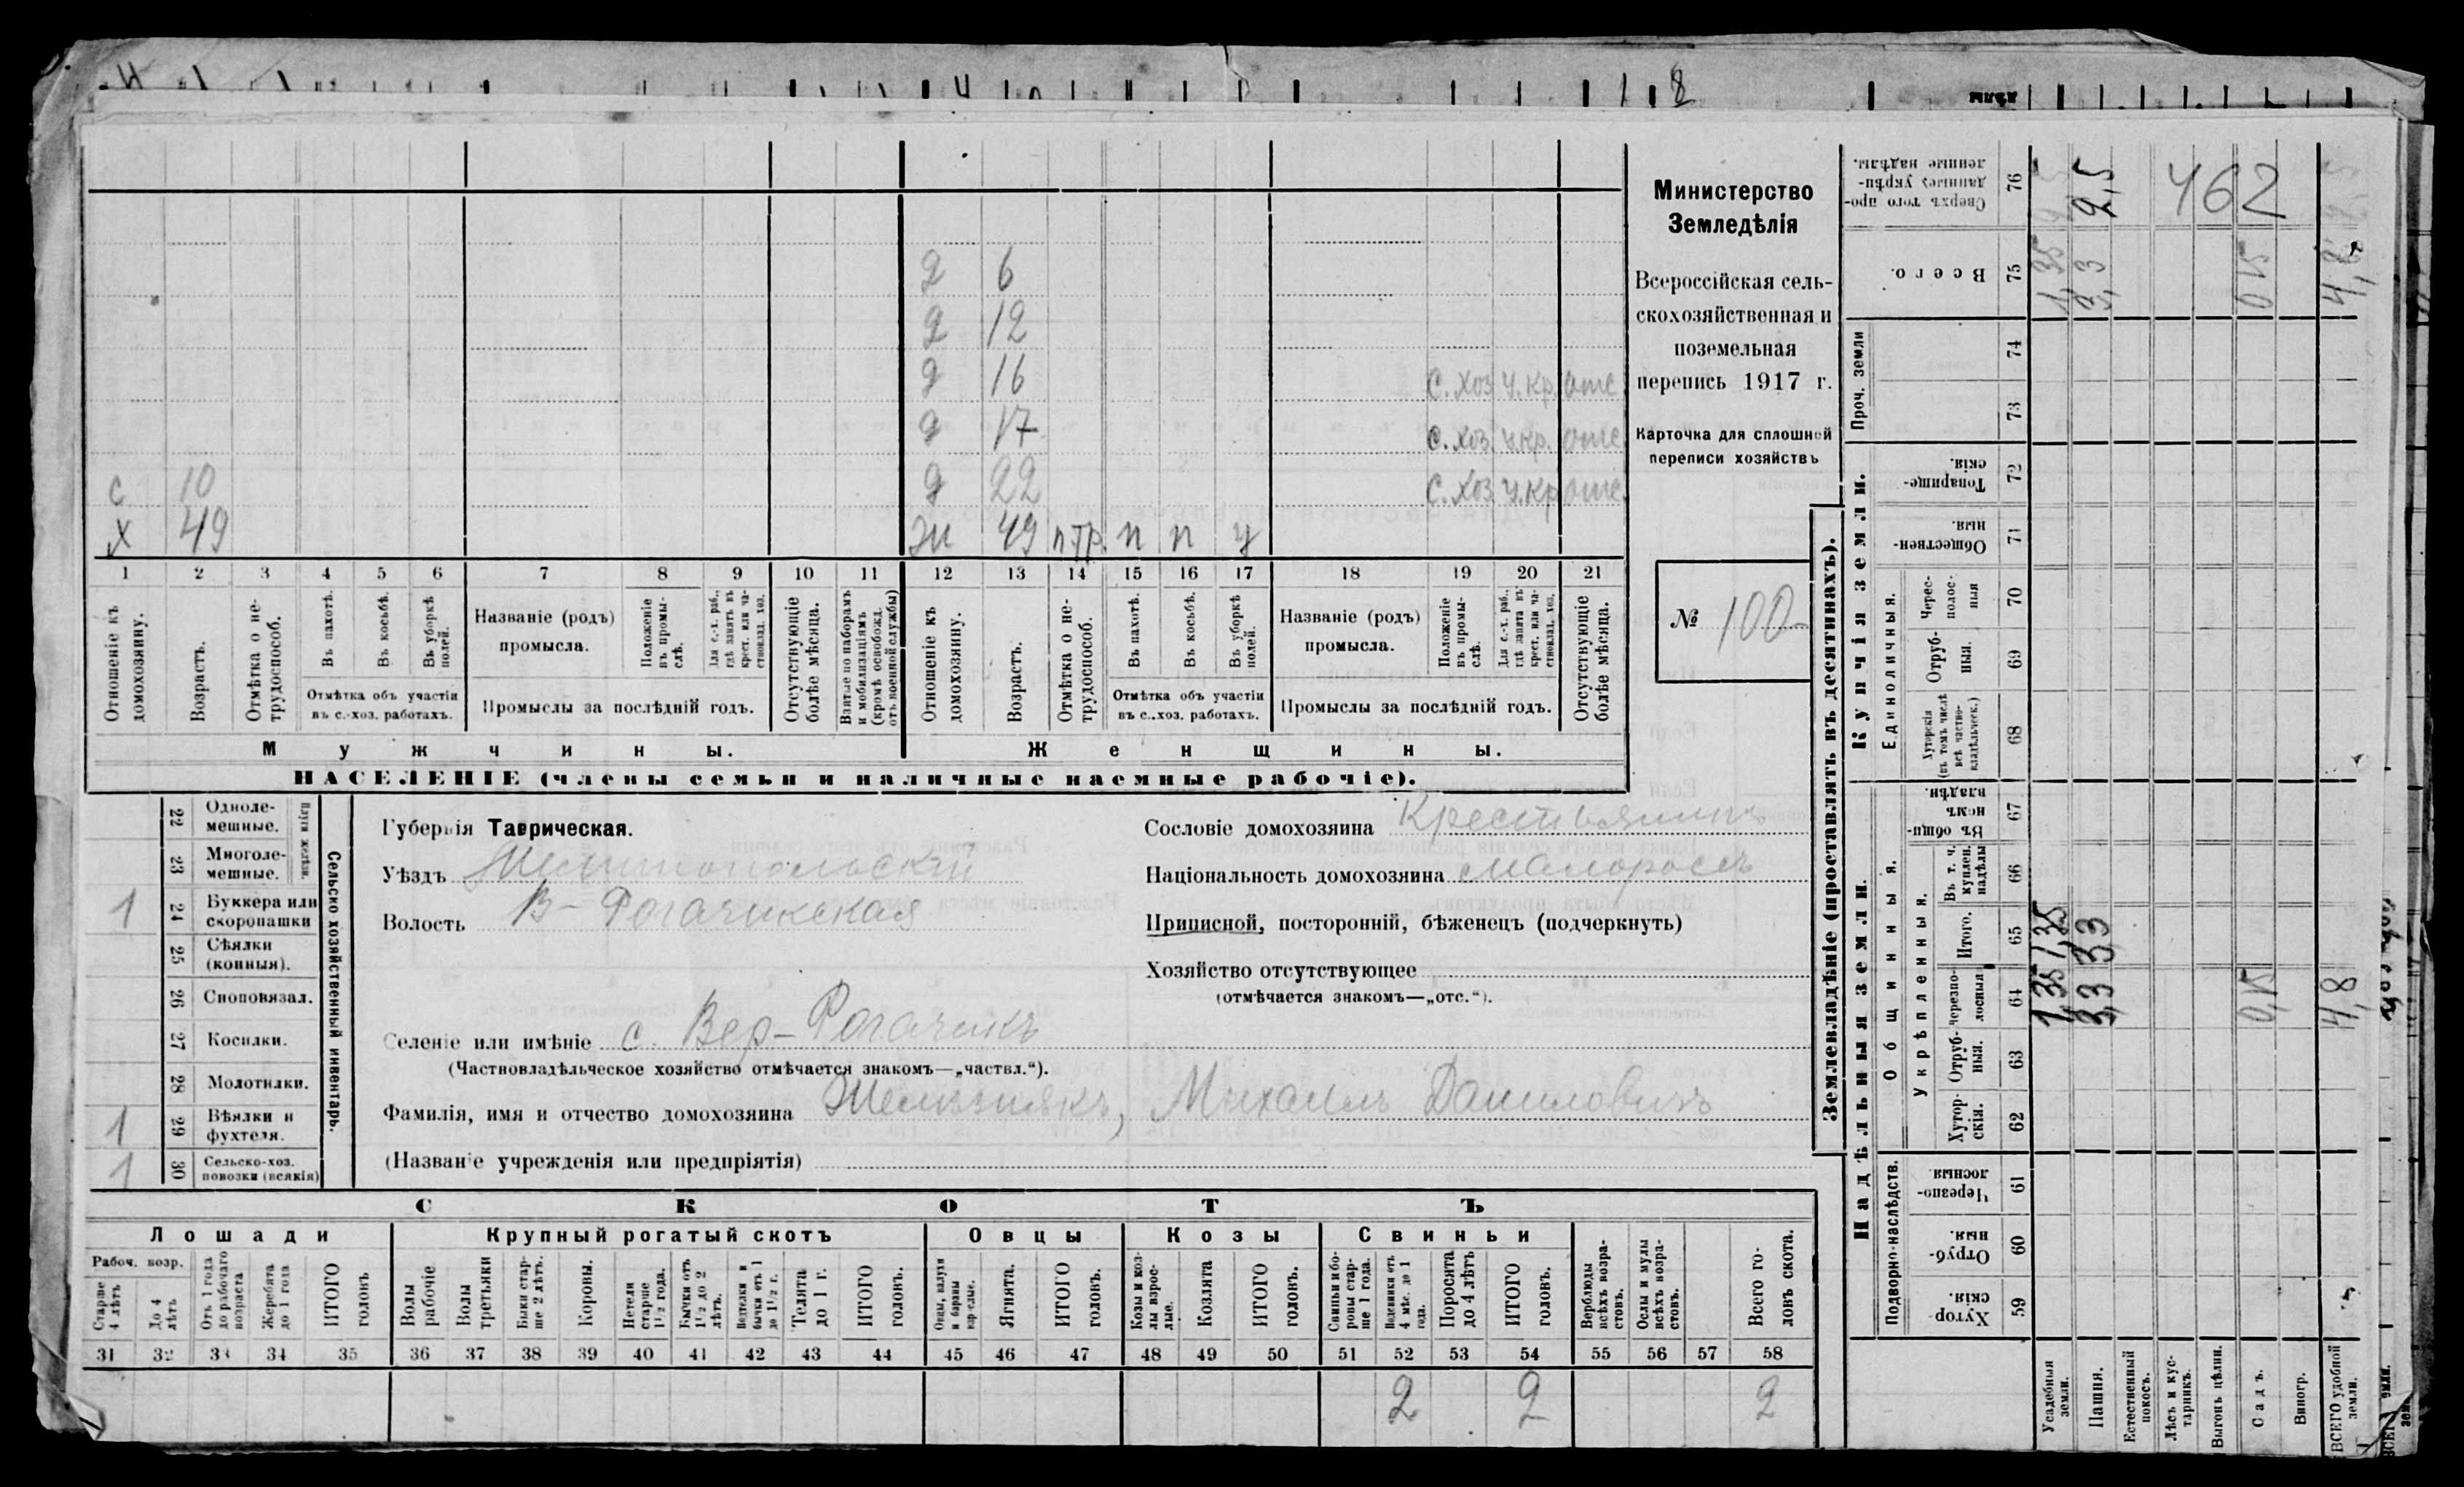 2 6
2 12
д 16 с. хоз у. кр. отс.
д 17 с. хоз. у. кр. отс
с 10 д 22 с. хоз у. кр отс.
х 49 ж 49 п тр. п п у
1 2 3 4 5 6 7 8 9 10 11 12 13 14 15 16 17 18 19 20 21
Отношеніе къ домохозяину.
Возрастъ.
Отмѣтка о не-трудоспособ.
Въ пахотѣ.
Въ косьбѣ.
Въ уборкѣ полей.
Отмѣтка объ участіи
въ с.-хоз. работахъ.
Названіе (родъ)
промысла.
Положеніе въ промы-слѣ.
Для с.-х. раб., гдѣ занятъ въ крест. или ча-стновлад. хоз.
Промыслы за послѣдній годъ.
Отсутствующіе болѣе мѣсяца.
Взятые по наборамъ и мобилизаціямъ (кромѣ освобожд. отъ военной службы)
Отношеніе къ домохозяину.
Возрастъ.
Отмѣтка о не-трудоспособ.
Въ пахотѣ.
Въ косьбѣ.
Въ уборкѣ полей.
Отмѣтка объ участіи
въ с.-хоз. работахъ.
Названіе (родъ)
промысла.
Положеніе въ промы-слѣ.
Для с.-х. раб., гдѣ занята въ крест. или ча-стновлад. хоз.
Промыслы за послѣдній годъ.
Отсутствующіе болѣе мѣсяца.
Мужчины. Женщины.
НАСЕЛЕНІЕ (члены семьи и наличные наемные рабочіе).
Министерство
Земледѣлія
Всероссійская сель-
скохозяйственная и
поземельная
перепись 1917 г.
Карточка для сплошной
переписи хозяйствъ
№ 100
22 Одноле-мешные.
23 Многоле-мешные.
Плуги желѣзн.
1 24 Буккера или скоропашки
25 Сѣялки (конныя).
26 Сноповязал.
27 Косилки.
28 Молотилки.
1 29 Вѣялки и фухтеля.
1 30 Сельско-хоз. повозки (всякія)
Сельско хозяйственный инвентарь.
Губернія Таврическая.
Уѣздъ Мелитопольскій
Волость В-Рогачикская
Селеніе или имѣніе с. Вер-Рогачикъ
(Частновладѣльческое хозяйство отмѣчается знакомъ—„частвл.“).
Фамилія, имя и отчество домохозяина Желѣзнякъ, Михаилъ Даниловичъ
(Названіе учрежденія или предпріятія)
Сословіе домохозяина Крестьянинъ
Національность домохозяина малороссъ
Приписной, посторонній, бѣженецъ (подчеркнуть)
Хозяйство отсутствующее
(отмѣчается знакомъ—„отс.“).
СКОТЪ
Лошади Крупный рогатый скотъ Овцы Козы Свиньи
Рабоч. возр.
Старше 4 лѣтъ
До 4 лѣтъ
Отъ 1 года до рабочаго возраста
Жеребята до 1 года
ИТОГО головъ
Волы рабочіе
Волы третьяки
Быки стар-ше 2 лѣтъ.
Коровы.
Нетели старше 1½ года.
Бычки отъ 1½ до 2 лѣтъ.
Нетелки и бычки отъ 1 до 1½ г.
Телята до 1 г.
ИТОГО головъ.
Овцы, валухи и бараны взрослые.
Ягнята.
ИТОГО головъ.
Козы и коз-лы взрос-лые.
Козлята
ИТОГО головъ.
Свиньи и бо-ровы стар-ше 1 года.
Подсвинки отъ 4 мѣс. до 1 года.
Поросята до 4 лѣтъ
ИТОГО головъ.
Верблюды всѣхъ возра-стовъ.
Ослы и мулы всѣхъ возра-стовъ.
Всего го-ловъ скота.
31 32 33 34 35 36 37 38 39 40 41 42 43 44 45 46 47 48 49 50 51 52 53 54 55 56 57 58
2 2 2
Землевладѣніе (проставлять въ десятинахъ).
Купчія земли.
Надѣльныя земли.
Сверхъ того про-данные укрѣп-ленные надѣлы. 76 2,5 462
Всего. 75 1,35 3,3 0,15 4,8
Проч. земли 74 73
Товарище-скія. 72
Обществен-ныя. 71
Единоличныя.
Черес-полос-ныя 70
Отруб-ныя. 69
Хуторскія (въ томъ числѣ всѣ частно-владѣльческ.) 68
Общинныя.
Въ общи-номъ владѣн. 67
Укрѣпленныя.
Въ т. ч. куплен. надѣлы 66
Итого. 65 1,35 3,3
Черезпо-лосныя 64 1,35 3,3 0,15 4,8
Отруб-ныя. 63
Хутор-скія. 62
Подворно-наслѣдств.
Черезпо-лосныя 61
Отруб-ныя. 60
Хутор-скія. 59
Усадебныя земли.
Пашня.
Естественный покосъ.
Лѣсъ и кус-тарникъ.
Выгонъ цѣлин.
Садъ.
Виногр.
ВСЕГО удобной земли.